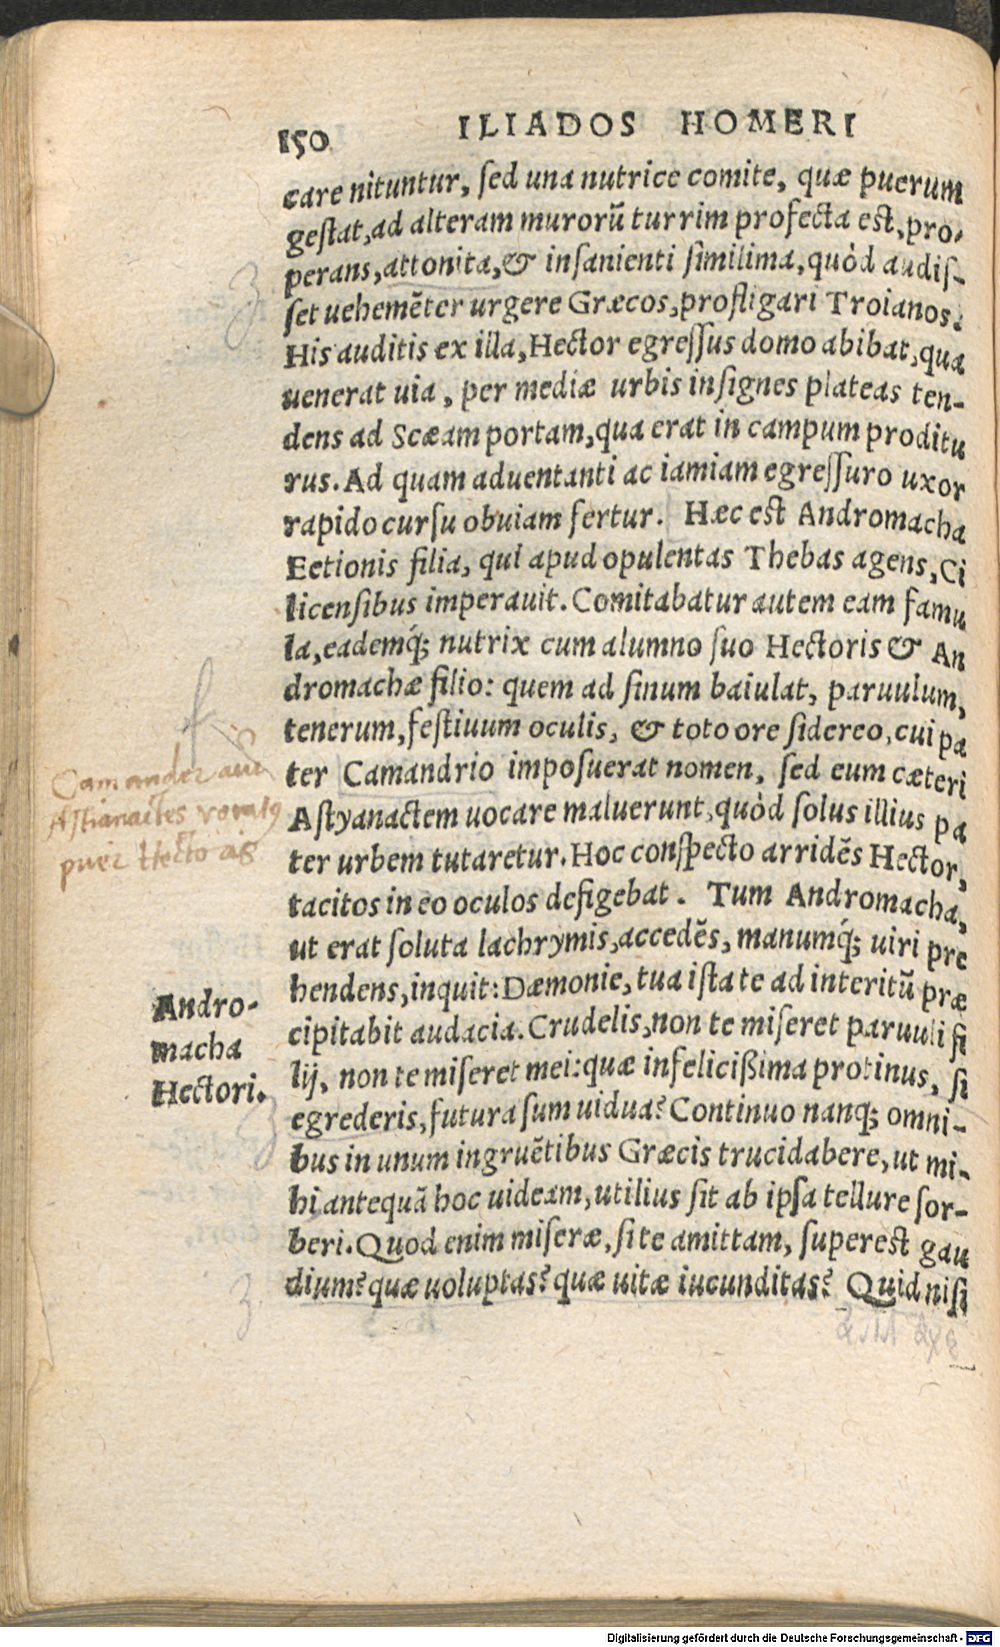 150 ILIADOS HOMERI
care nituntur, ſed una nutrice comite, quæ puerum
geſtat, ad alteram murorũ turrim profecta eſt, pro-
perans, attonita, & inſanienti ſimilima, quòd audiſ-
ſet uehemẽter urgere Græcos, profligari Troianos.
His auditis ex illa, Hector egreſſus domo abibat, qua
uenerat uia, per mediæ urbis inſignes plateas ten-
dens ad Scæam portam, qua erat in campum proditu
rus. Ad quam aduentanti ac iamiam egreſſuro uxor
rapido curſu obuiam fertur. Hæc eſt Andromacha
Eetionis filia, qui apud opulentas Thebas agens, Ci
licenſibus imperauit. Comitabatur autem eam famu
la, eademq́; nutrix cum alumno ſuo Hectoris & An
dromachæ filio: quem ad ſinum baiulat, paruulum,
tenerum, feſtiuum oculis, & toto ore ſidereo, cui pa
ter Camandrio impoſuerat nomen, ſed eum cæteri
Aſtyanactem uocare maluerunt, quòd ſolus illius pa
ter urbem tutaretur. Hoc conſpecto arridẽs Hector,
tacitos in eo oculos defigebat. Tum Andromacha,
ut erat ſoluta lachrymis, accedẽs, manumq́; uiri pre
hendens, inquit: Dæmonie, tua iſta te ad interitũ præ
cipitabit audacia. Crudelis, non te miſeret paruuli fi
lij, non te miſeret mei: quæ infelicißima protinus, ſi
egrederis, futura ſum uidua? Continuo nanq; omni-
bus in unum ingruẽtibus Græcis trucidabere, ut mi-
hi antequã hoc uideam, utilius ſit ab ipſa tellure ſor-
beri. Quod enim miſeræ, ſi te amittam, ſupereſt gau
dium? quæ uoluptas? quæ uitæ iucunditas? Quid niſi
Camander
puer Hecto
Andro-
macha
Hectori.
Digitalisierung gefördert durch die Deutsche Forschungsgemeinschaft - DFG